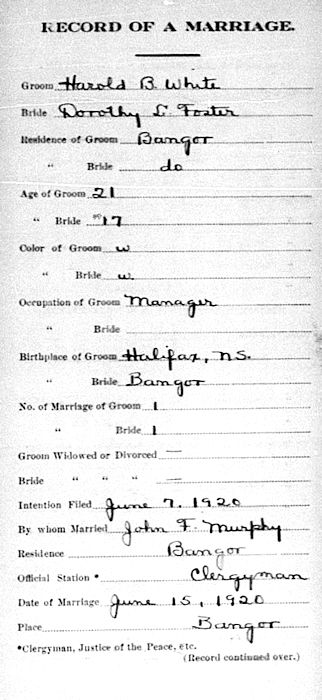 RECORD OF A MARRIAGE.
Groom Harold B. White
Bride Dorothy L. Foster
Residence of Groom Bangor
" Bride do
Age of Groom 21
" Bride 17
Color of Groom w
" Bride w.
Occupation of Groom Manager
" Bride
Birthplace of Groom Halifax, N.S.
" Bride Bangor
No. of Marriage of Groom 1
" Bride 1
Groom Widowed or Divorced —
Bride " " " —
Intention Filed June 7, 1920
By whom Married John F. Murphy
Residence Bangor
Official Station * Clergyman
Date of Marriage June 15, 1920
Place Bangor
*Clergyman, Justice of the Peace, etc.
(Record continued over.)